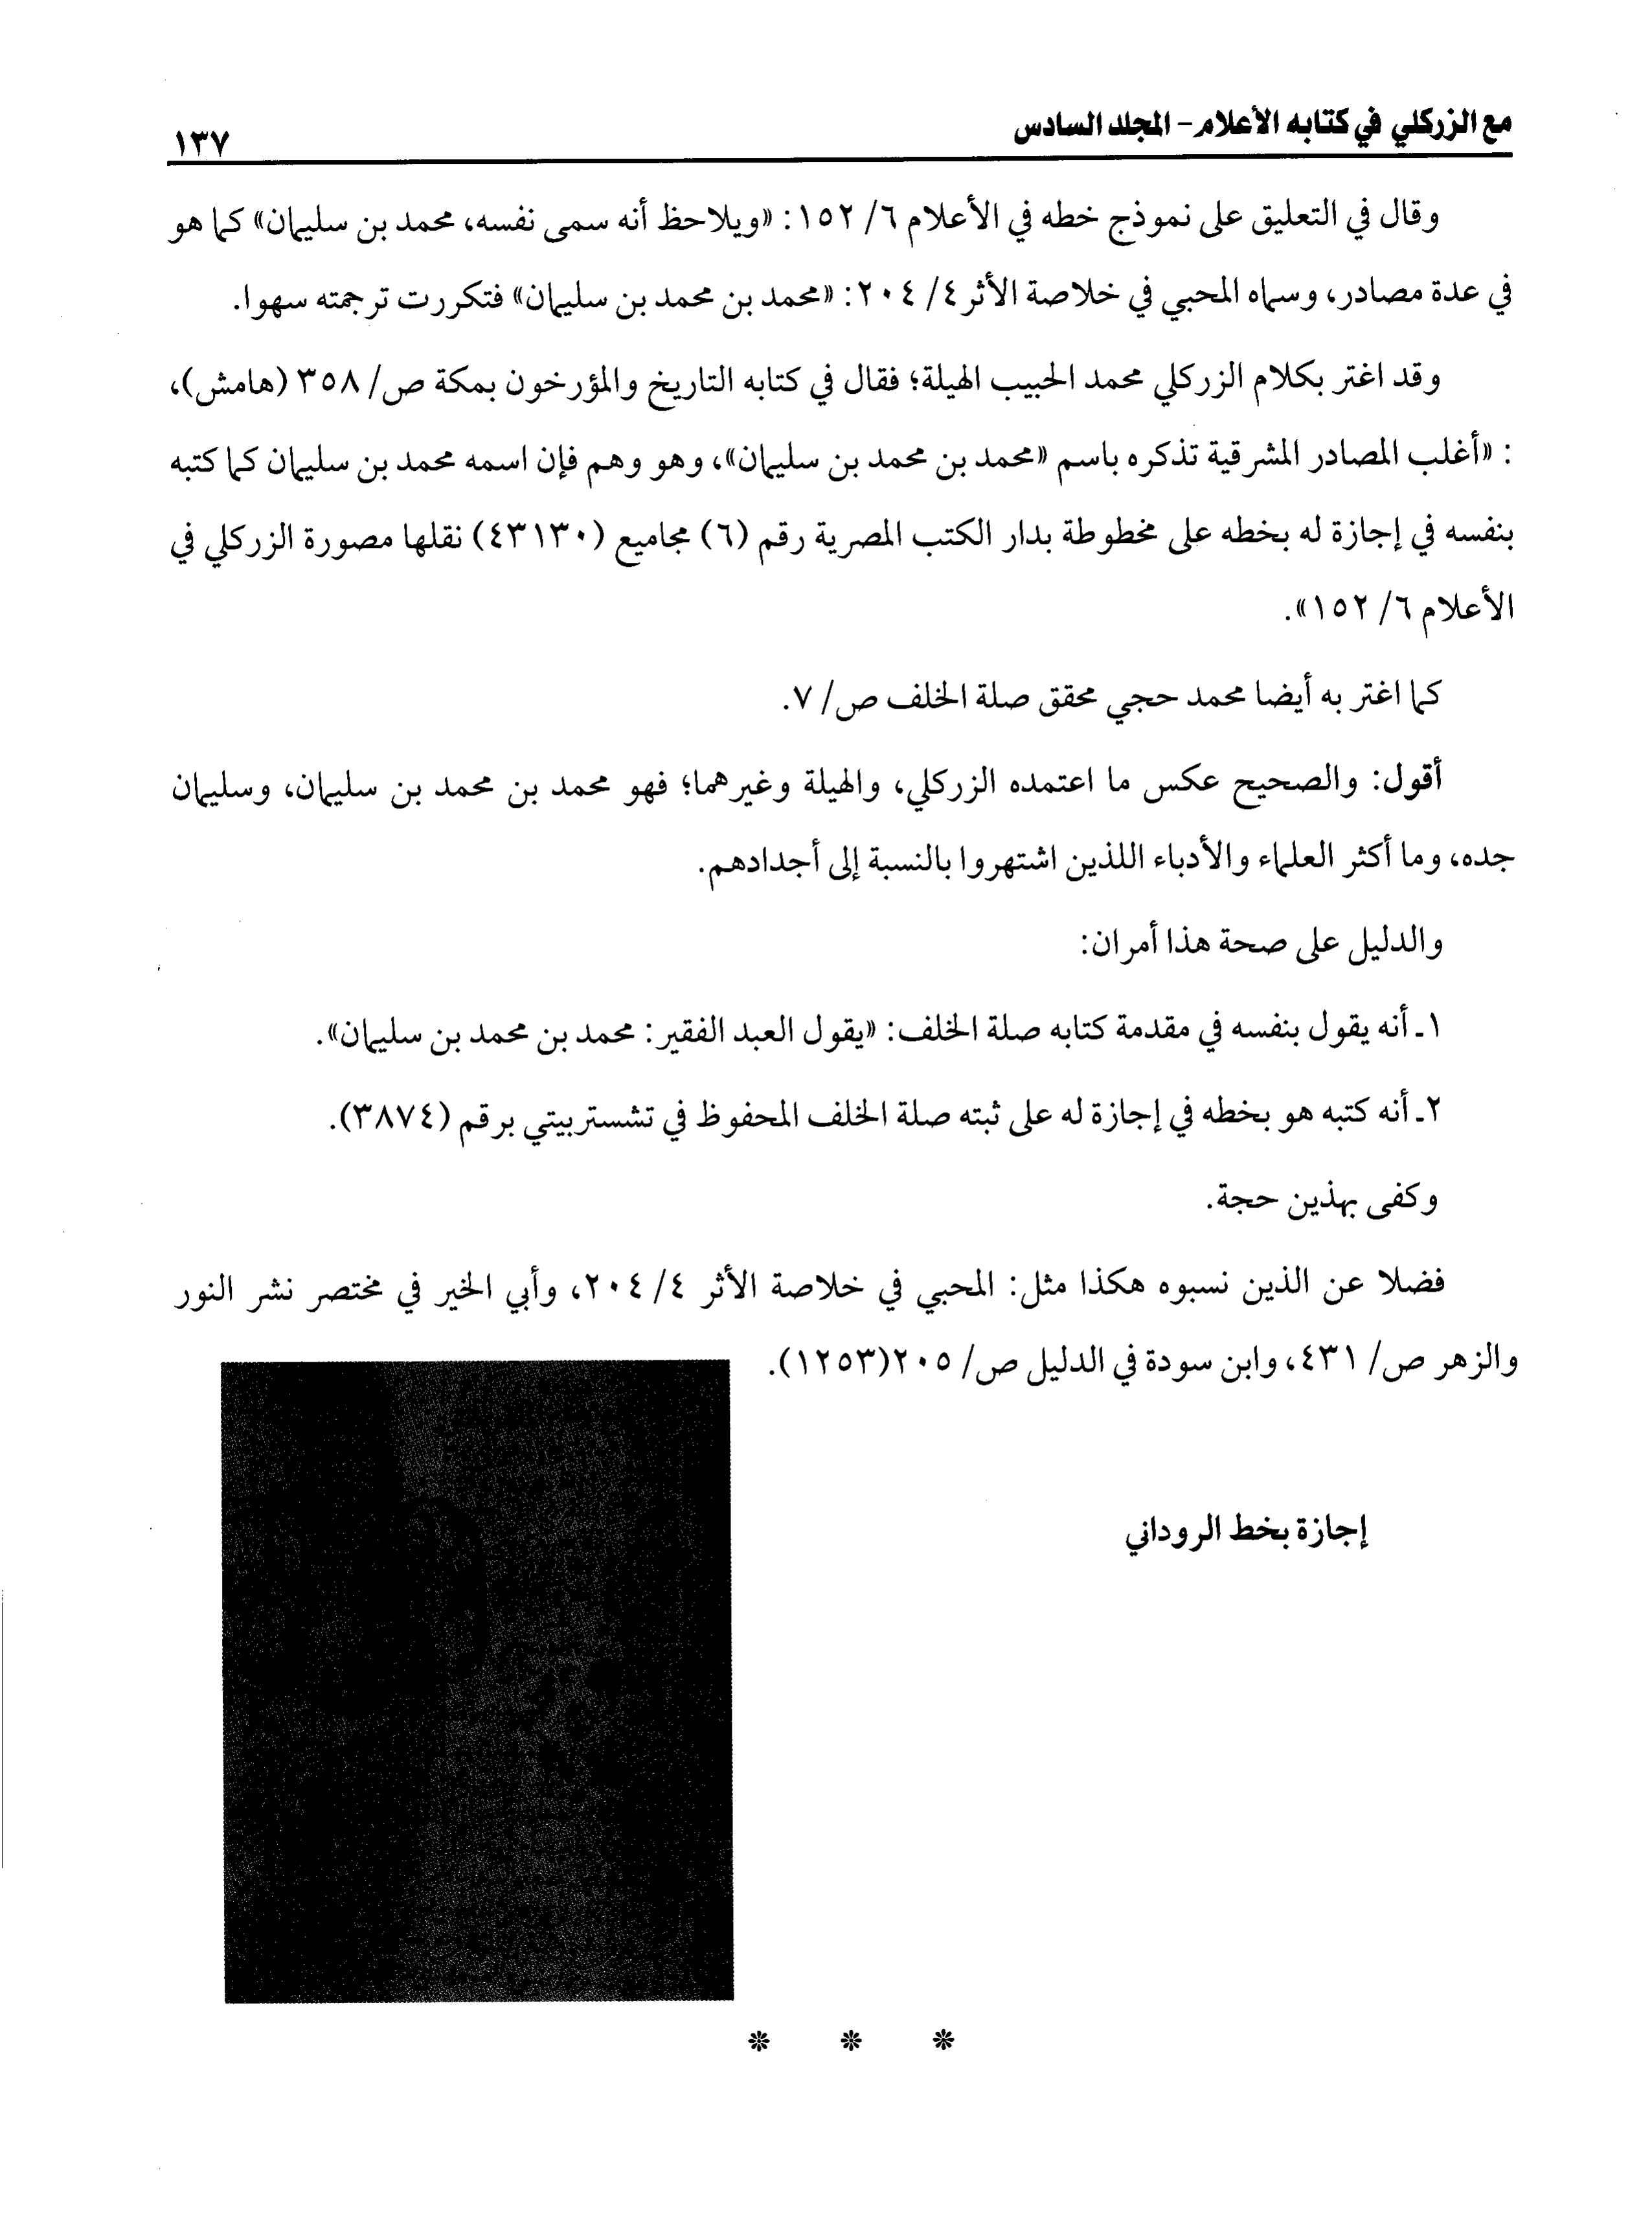 مع الزركلي في كتابه الأعلام - المجلد السادس
١٣٧
وقال في التعليق على نموذج خطه في الأعلام ٦/ ١٥٢: «ويلاحظ أنه سمى نفسه، محمد بن سليمان» كما هو
في عدة مصادر، وسماه المحبي في خلاصة الأثر ٤/ ٢٠٤: «محمد بن محمد بن سليمان» فتكررت ترجمته سهوا.
وقد اغتر بكلام الزركلي محمد الحبيب الهيلة؛ فقال في كتابه التاريخ والمؤرخون بمكة ص/ ٣٥٨ (هامش)،
: «أغلب المصادر المشرقية تذكره باسم «محمد بن محمد بن سليمان»، وهو وهم فإن اسمه محمد بن سليمان كما كتبه
بنفسه في إجازة له بخطه على مخطوطة بدار الكتب المصرية رقم (٦) مجاميع (٤٣١٣٠) نقلها مصورة الزركلي في
الأعلام ٦/ ١٥٢».
كما اغتر به أيضا محمد حجي محقق صلة الخلف ص/ ٧.
أقول: والصحيح عكس ما اعتمده الزركلي، والهيلة وغيرهما؛ فهو محمد بن محمد بن سليمان، وسليمان
جده، وما أكثر العلماء والأدباء اللذين اشتهروا بالنسبة إلى أجدادهم.
والدليل على صحة هذا أمران:
١ـ أنه يقول بنفسه في مقدمة كتابه صلة الخلف: «يقول العبد الفقير: محمد بن محمد بن سليمان».
٢ـ أنه كتبه هو بخطه في إجازة له على ثبته صلة الخلف المحفوظ في تشستربيتي برقم (٣٨٧٤).
وكفى بهذين حجة.
فضلا عن الذين نسبوه هكذا مثل: المحبي في خلاصة الأثر ٤/ ٢٠٤، وأبي الخير في مختصر نشر النور
والزهر ص/ ٤٣١، وابن سودة في الدليل ص/ ٢٠٥(١٢٥٣).
إجازة بخط الروداني
* * *